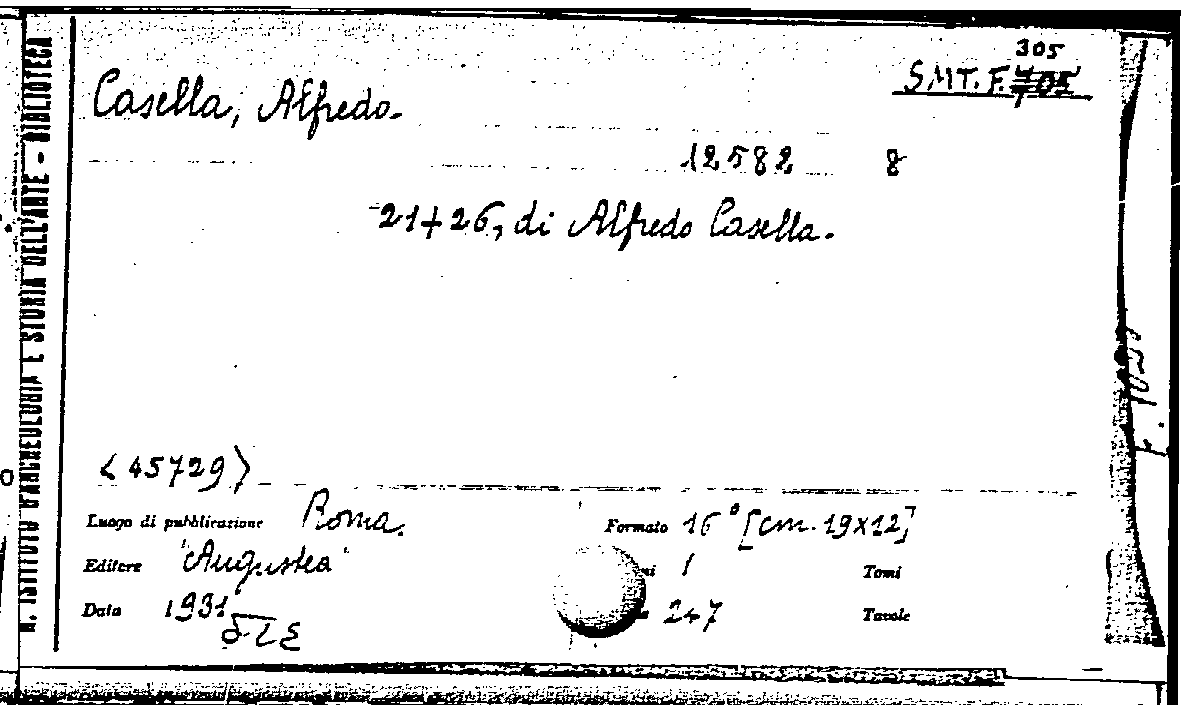 305
S.MT. F. 705
Casella, Alfredo.
12582 8
21+26, di Alfredo Casella.
<45729>
Luogo di pubblicazione Roma.
Formato 16° [cm. 19x12]
Editore "Augustea"
1
Tomi
Data 1931
247
Tavole
R. ISTITUTO D'ARCHEOLOGIA E STORIA DELL'ARTE - BIBLIOTECA